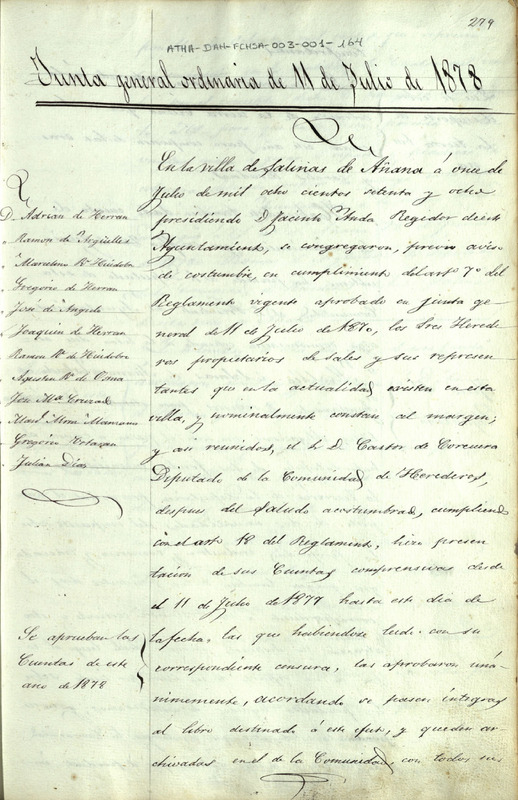 279
ATHA-DAH-FCHSA-003-001-164
Junta general ordinaria de 11 de Julio de 1878
D. Adrian de Herran
" Ramon de Argüelles
" Marcelino
" Gregorio de Herran
" José de Angulo
" Joaquin de Herran
" Ramon
" Agustin Rz. de Osma
" José Ma.
" Manl.
" Gregorio
" Julian Diaz
Se aprueban las
Cuentas de este
año de 1878
En la villa de Salinas de Añana á once de
Julio de mil ocho cientos setenta y ocho
presidiendo D. Jacinto Anda Regidor de este
Ayuntamiento, se congregaron, previo aviso
de costumbre, en cumplimiento del arto. 7o. del
Reglamento vigente aprobado en junta ge
neral de 11 de Julio de 1870, los Sres. Herede
ros propietarios de sales y sus represen
tantes que en la actualidad existen en esta
villa, y nominalmente constan al margen;
y asi reunidos, el Sr. D. Castor de Corcuera
Diputado de la Comunidad de Herederos,
despues del saludo acostumbrado, cumpliendo
con el arto. 18 del Reglamento, hizo presen
tacion de sus Cuentas comprensivas desde
el 11 de Julio de 1877 hasta este dia de
la fecha, las que habiendose leido con su
correspondiente censura, las aprobaron uná-
nimemente, acordando se pasen íntegras
al libro destinado á este efto., y queden ar
chivadas en el de la Comunidad, con todos sus